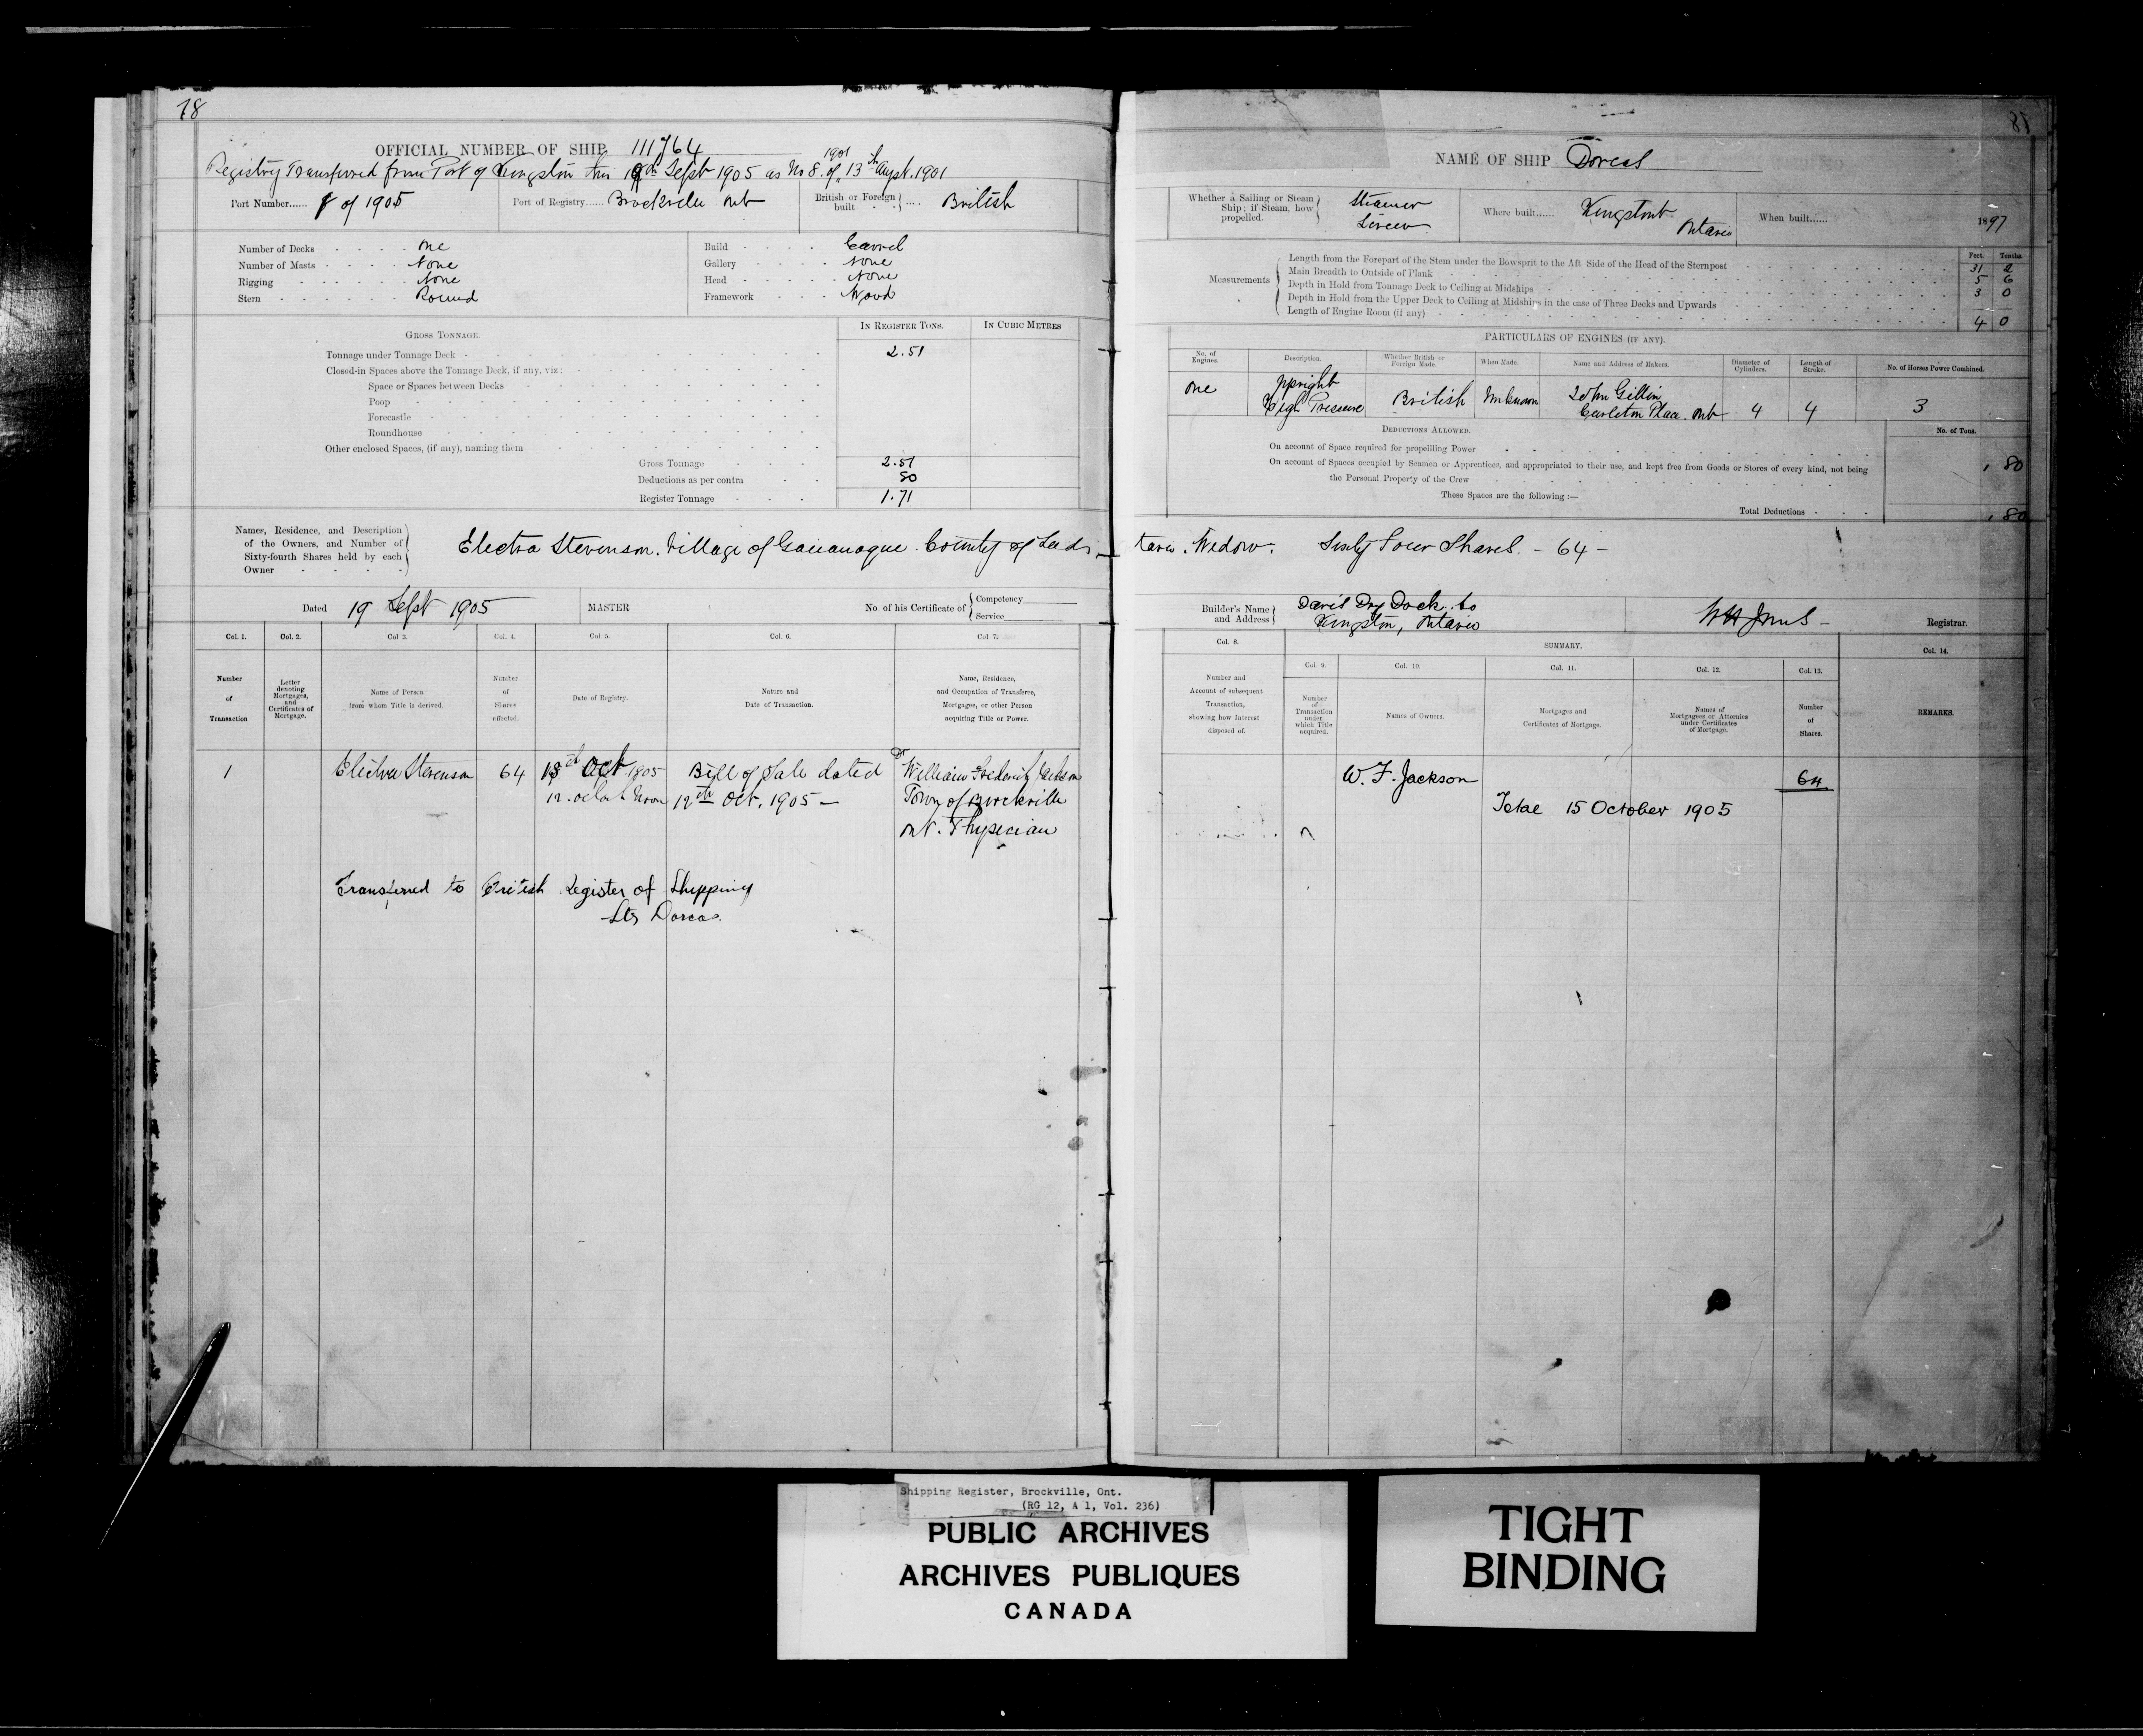 78
OFFICIAL NUMBER OF SHIP 111764
Registry Transferred from Port of Kingston this 19th Sept 1905 as No 8. of 1901 13th Augst. 1901
Port Number...... of 1905 Port of Registry...... Brockville Ont British or Foreign built .... British
Number of Decks One
Number of Masts None
Rigging None
Stern Round
Build Carvel
Gallery None
Head None
Framework Wood
GROSS TONNAGE. IN REGISTER TONS. IN CUBIC METRES
Tonnage under Tonnage Deck 2.51
Closed-in Spaces above the Tonnage Deck, if any, viz:
Space or Spaces between Decks
Poop
Forecastle
Roundhouse
Other enclosed Spaces, (if any), naming them
Gross Tonnage 2.51
Deductions as per contra 80
Register Tonnage 1.71
Names, Residence, and Description
of the Owners, and Number of
Sixty-fourth Shares held by each
Owner
Electra Stevenson. Village of Gananoque. County of Leeds
Dated 19 Sept 1905 MASTER No. of his Certificate of Competency Service
Col. 1. Col. 2. Col 3. Col. 4. Col. 5. Col. 6. Col 7.
Number of Transaction
Letter denoting Mortgages, and Certificates of Mortgage.
Name of Person from whom Title is derived.
Number of Shares affected.
Date of Registry.
Nature and Date of Transaction.
Name, Residence, and Occupation of Transferee, Mortgagee, or other Person acquiring Title or Power.
1 Electra Stevenson 64 Oct 1905 Bill of Sale dated Dr William Frederick Jackson
12 o'clock Noon 12th Oct. 1905 — Town of Brockville
Ont. Physician
Transferred to British Register of Shipping
Str Dorcas.
NAME OF SHIP Dorcas
Whether a Sailing or Steam
Ship; if Steam, how
propelled.
Steamer
Screw
Where built...... Kingston
Ontario
When built...... 1897
Measurements
Feet. Tenths.
Length from the Forepart of the Stem under the Bowsprit to the Aft Side of the Head of the Sternpost 31 2
Main Breadth to Outside of Plank 5 6
Depth in Hold from Tonnage Deck to Ceiling at Midships 3 0
Depth in Hold from the Upper Deck to Ceiling at Midships in the case of Three Decks and Upwards
Length of Engine Room (if any) 4 0
PARTICULARS OF ENGINES (IF ANY).
No. of Engines. Description. Whether British or Foreign Made. When Made. Name and Address of Makers. Diameter of Cylinders. Length of Stroke. No. of Horses Power Combined.
One Upright
High Pressure British Unknown John Gillin
Carleton Place. Ont 4 4 3
DEDUCTIONS ALLOWED. No. of Tons.
On account of Space required for propelling Power . 80
On account of Spaces occupied by Seamen or Apprentices, and appropriated to their use, and kept free from Goods or Stores of every kind, not being
the Personal Property of the Crew
These Spaces are the following :—
Total Deductions . 80
tario. Widow. Sixty Four Shares. - 64 -
Builder's Name
and Address
Davis Dry Dock Co
Kingston, Ontario
Registrar.
Col. 8. SUMMARY. Col. 14.
Col. 9. Col. 10. Col. 11. Col. 12. Col. 13.
Number and Account of subsequent Transaction, showing how Interest disposed of.
Number of Transaction under which Title acquired.
Names of Owners.
Mortgages and Certificates of Mortgage.
Names of Mortgagees or Attornies under Certificates of Mortgage.
Number of Shares.
REMARKS.
W. F. Jackson 64
Total 15 October 1905
Shipping Register, Brockville, Ont.
(RG 12, A 1, Vol. 236)
PUBLIC ARCHIVES
ARCHIVES PUBLIQUES
CANADA
TIGHT
BINDING